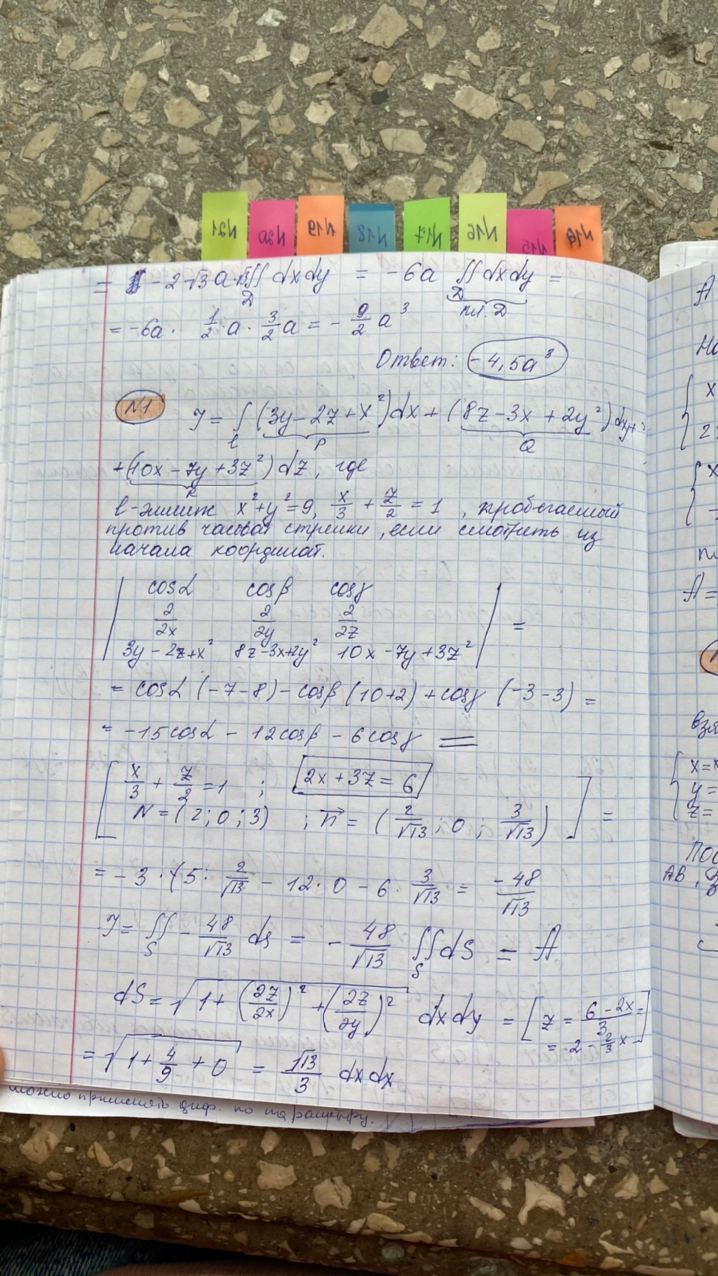 N21 N20 N19 N18 N17 N16 N15 N14
= -2√3 a ∬ dxdy = -6a ∬ dxdy =
D D
пл. D
= -6a · 1/2 a · 3/2 a = - 9/2 a³
Ответ: -4,5a³
N1 J = ∫ (3y-2z+x²)dx + (8z-3x+2y²)dy +
l P Q
+ (10x-7y+3z²)dz, где
R
l-эллипс x²+y²=9, x/3 + z/2 = 1, пробегаемый
против часовой стрелки, если смотреть из
начала координат.
| cosα cosβ cosγ |
| ∂/∂x ∂/∂y ∂/∂z | =
| 3y-2z+x² 8z-3x+2y² 10x-7y+3z² |
= cosα (-7-8) - cosβ (10+2) + cosγ (-3-3) =
= -15cosα - 12cosβ - 6cosγ =
[ x/3 + z/2 = 1 ; 2x+3z=6
N = (2; 0; 3) ; n⃗ = (2/√13 ; 0 ; 3/√13) ] =
= - 15 · 2/√13 - 12·0 - 6 · 3/√13 = -48/√13
J = ∬ - 48/√13 ds = - 48/√13 ∬ dS = A
S S
dS = √(1+(∂z/∂x)² + (∂z/∂y)²) dxdy = [ z = (6-2x)/3 =
= 2 - 2/3 x ]
= √(1+4/9+0) = √13/3 dxdx
можно применять по параметру.
A
x
2
x
A=
взя
x=
y=
z=
AB,